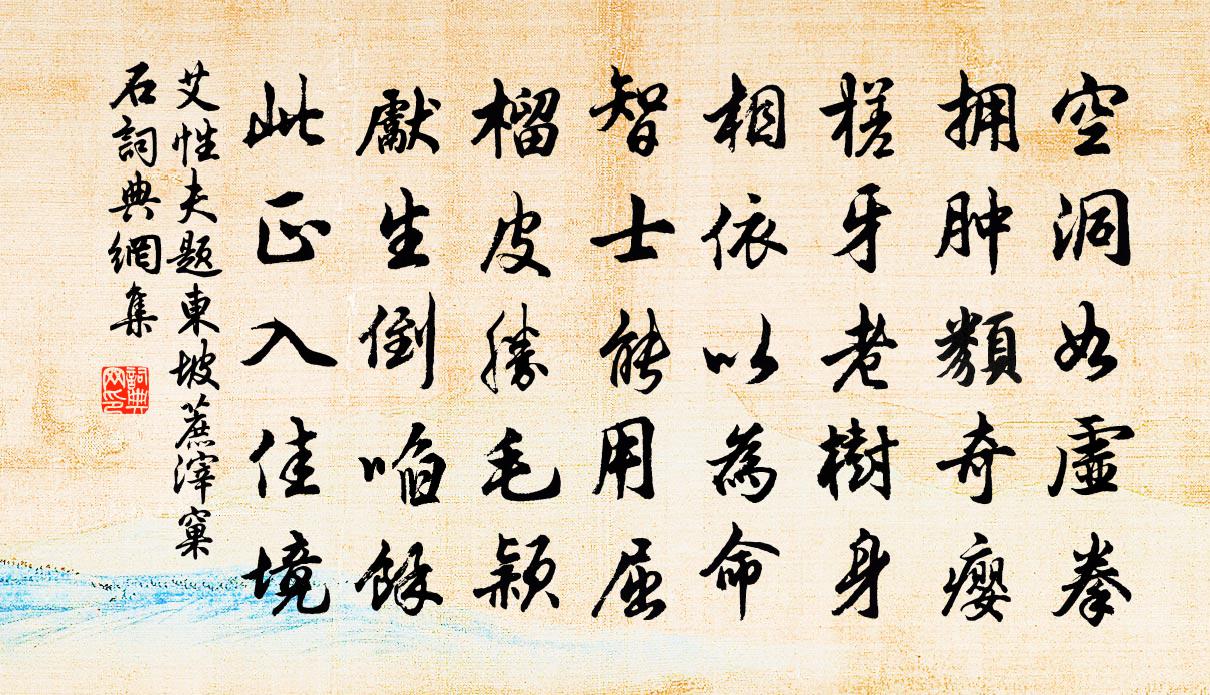 空洞如虛拳
拥肿類奇癭
槎牙老樹身
相依以為命
智士能用屈
榴皮勝毛穎
獻生倒啗餘
此正入佳境
艾性夫題東坡蔗滓窠
石詞典網集
詞典网印